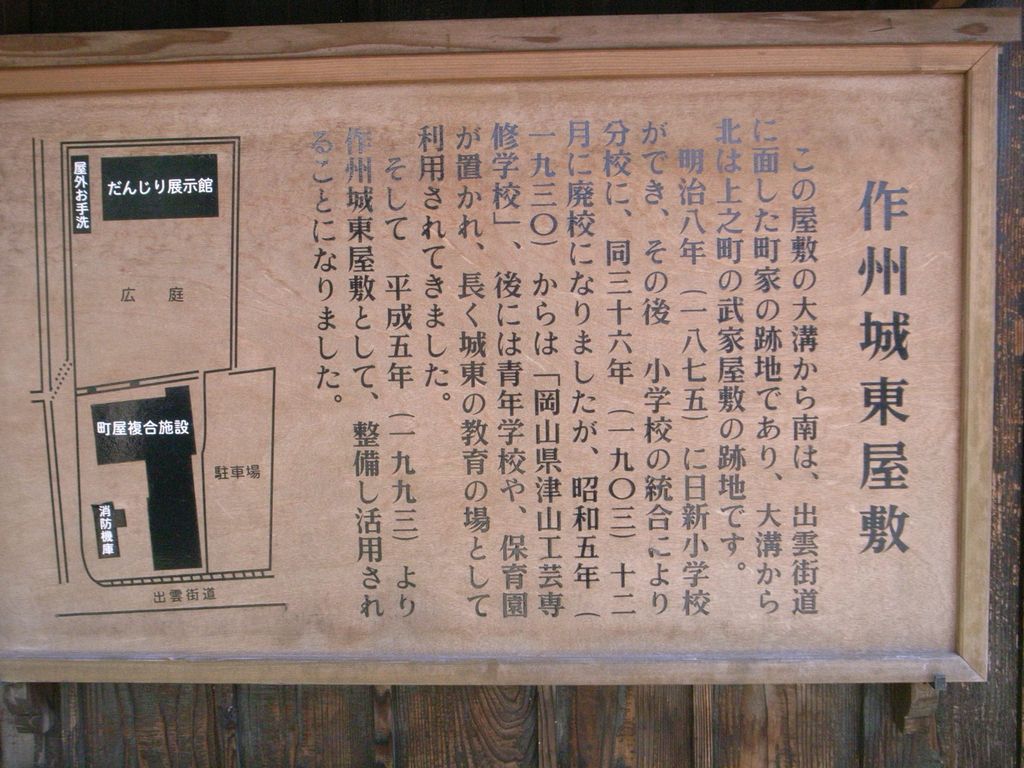 作州城東屋敷
この屋敷の大溝から南は、出雲街道
に面した町家の跡地であり、大溝から
北は上之町の武家屋敷の跡地です。
明治八年（一八七五）に日新小学校
ができ、その後　小学校の統合により
分校に、同三十六年（一九〇三）十二
月に廃校になりましたが、昭和五年（
一九三〇）からは「岡山県津山工芸専
修学校」、後には青年学校や、保育園
が置かれ、長く城東の教育の場として
利用されてきました。
そして　平成五年（一九九三）より
作州城東屋敷として、整備し活用され
ることになりました。
だんじり展示館
屋外お手洗
広庭
町屋複合施設
駐車場
消防機庫
出雲街道